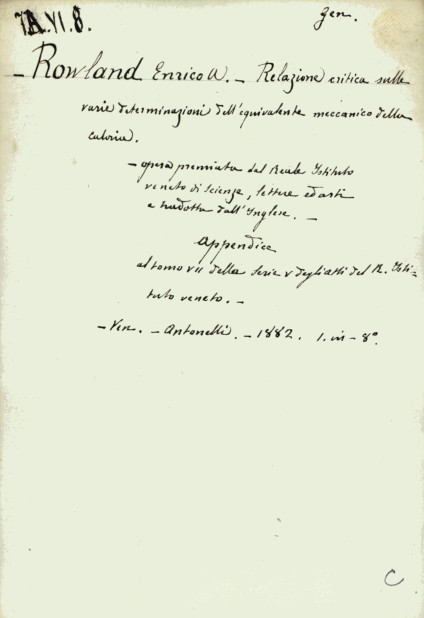 7A.VI.8.
Gen.
- Rowland Enrico A. - Relazione critica sulle
varie determinazioni dell'equivalente meccanico della
caloria.
- opera premiata dal Reale Istituto
veneto di scienze, lettere ed arti
e tradotta dall'Inglese. -
Appendice
al tomo VII della serie V degli atti del R. Isti=
tuto veneto. -
- Ven. - Antonelli. - 1882. 1. in - 8º.
C